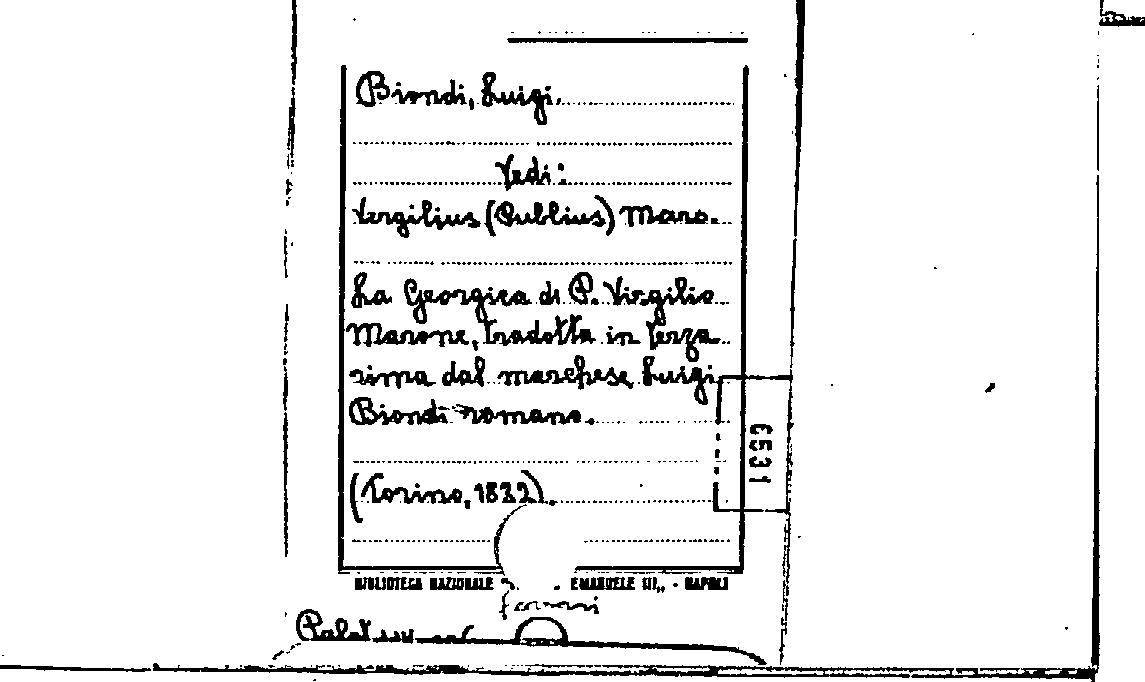 Biondi, Luigi.
Vedi:
Vergilius (Publius) Maro.
La Georgica di P. Virgilio
Marone, tradotta in terza
rima dal marchese Luigi
Biondi romano.
(Torino, 1832).
6531
BIBLIOTECA NAZIONALE EMANUELE III,, - NAPOLI
Palat